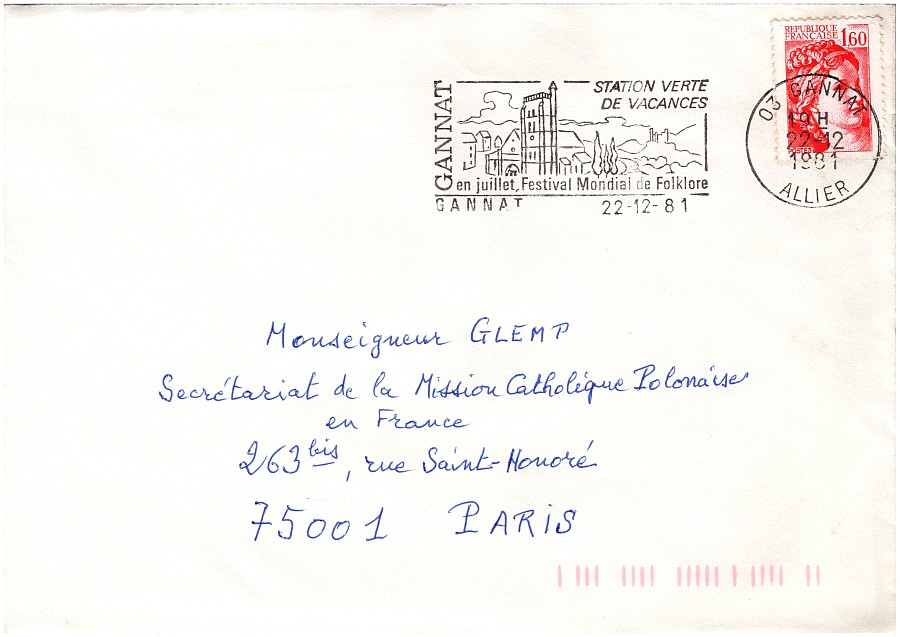 REPUBLIQUE
FRANÇAISE 1,60
POSTES
STATION VERTE
DE VACANCES
GANNAT
en juillet, Festival Mondial de Folklore
GANNAT 22-12-81
03 GANNAT
19 H
22-12
1981
ALLIER
Monseigneur GLEMP
Secrétariat de la Mission Catholique Polonaise
en France
263 bis, rue Saint-Honoré
75001 PARIS